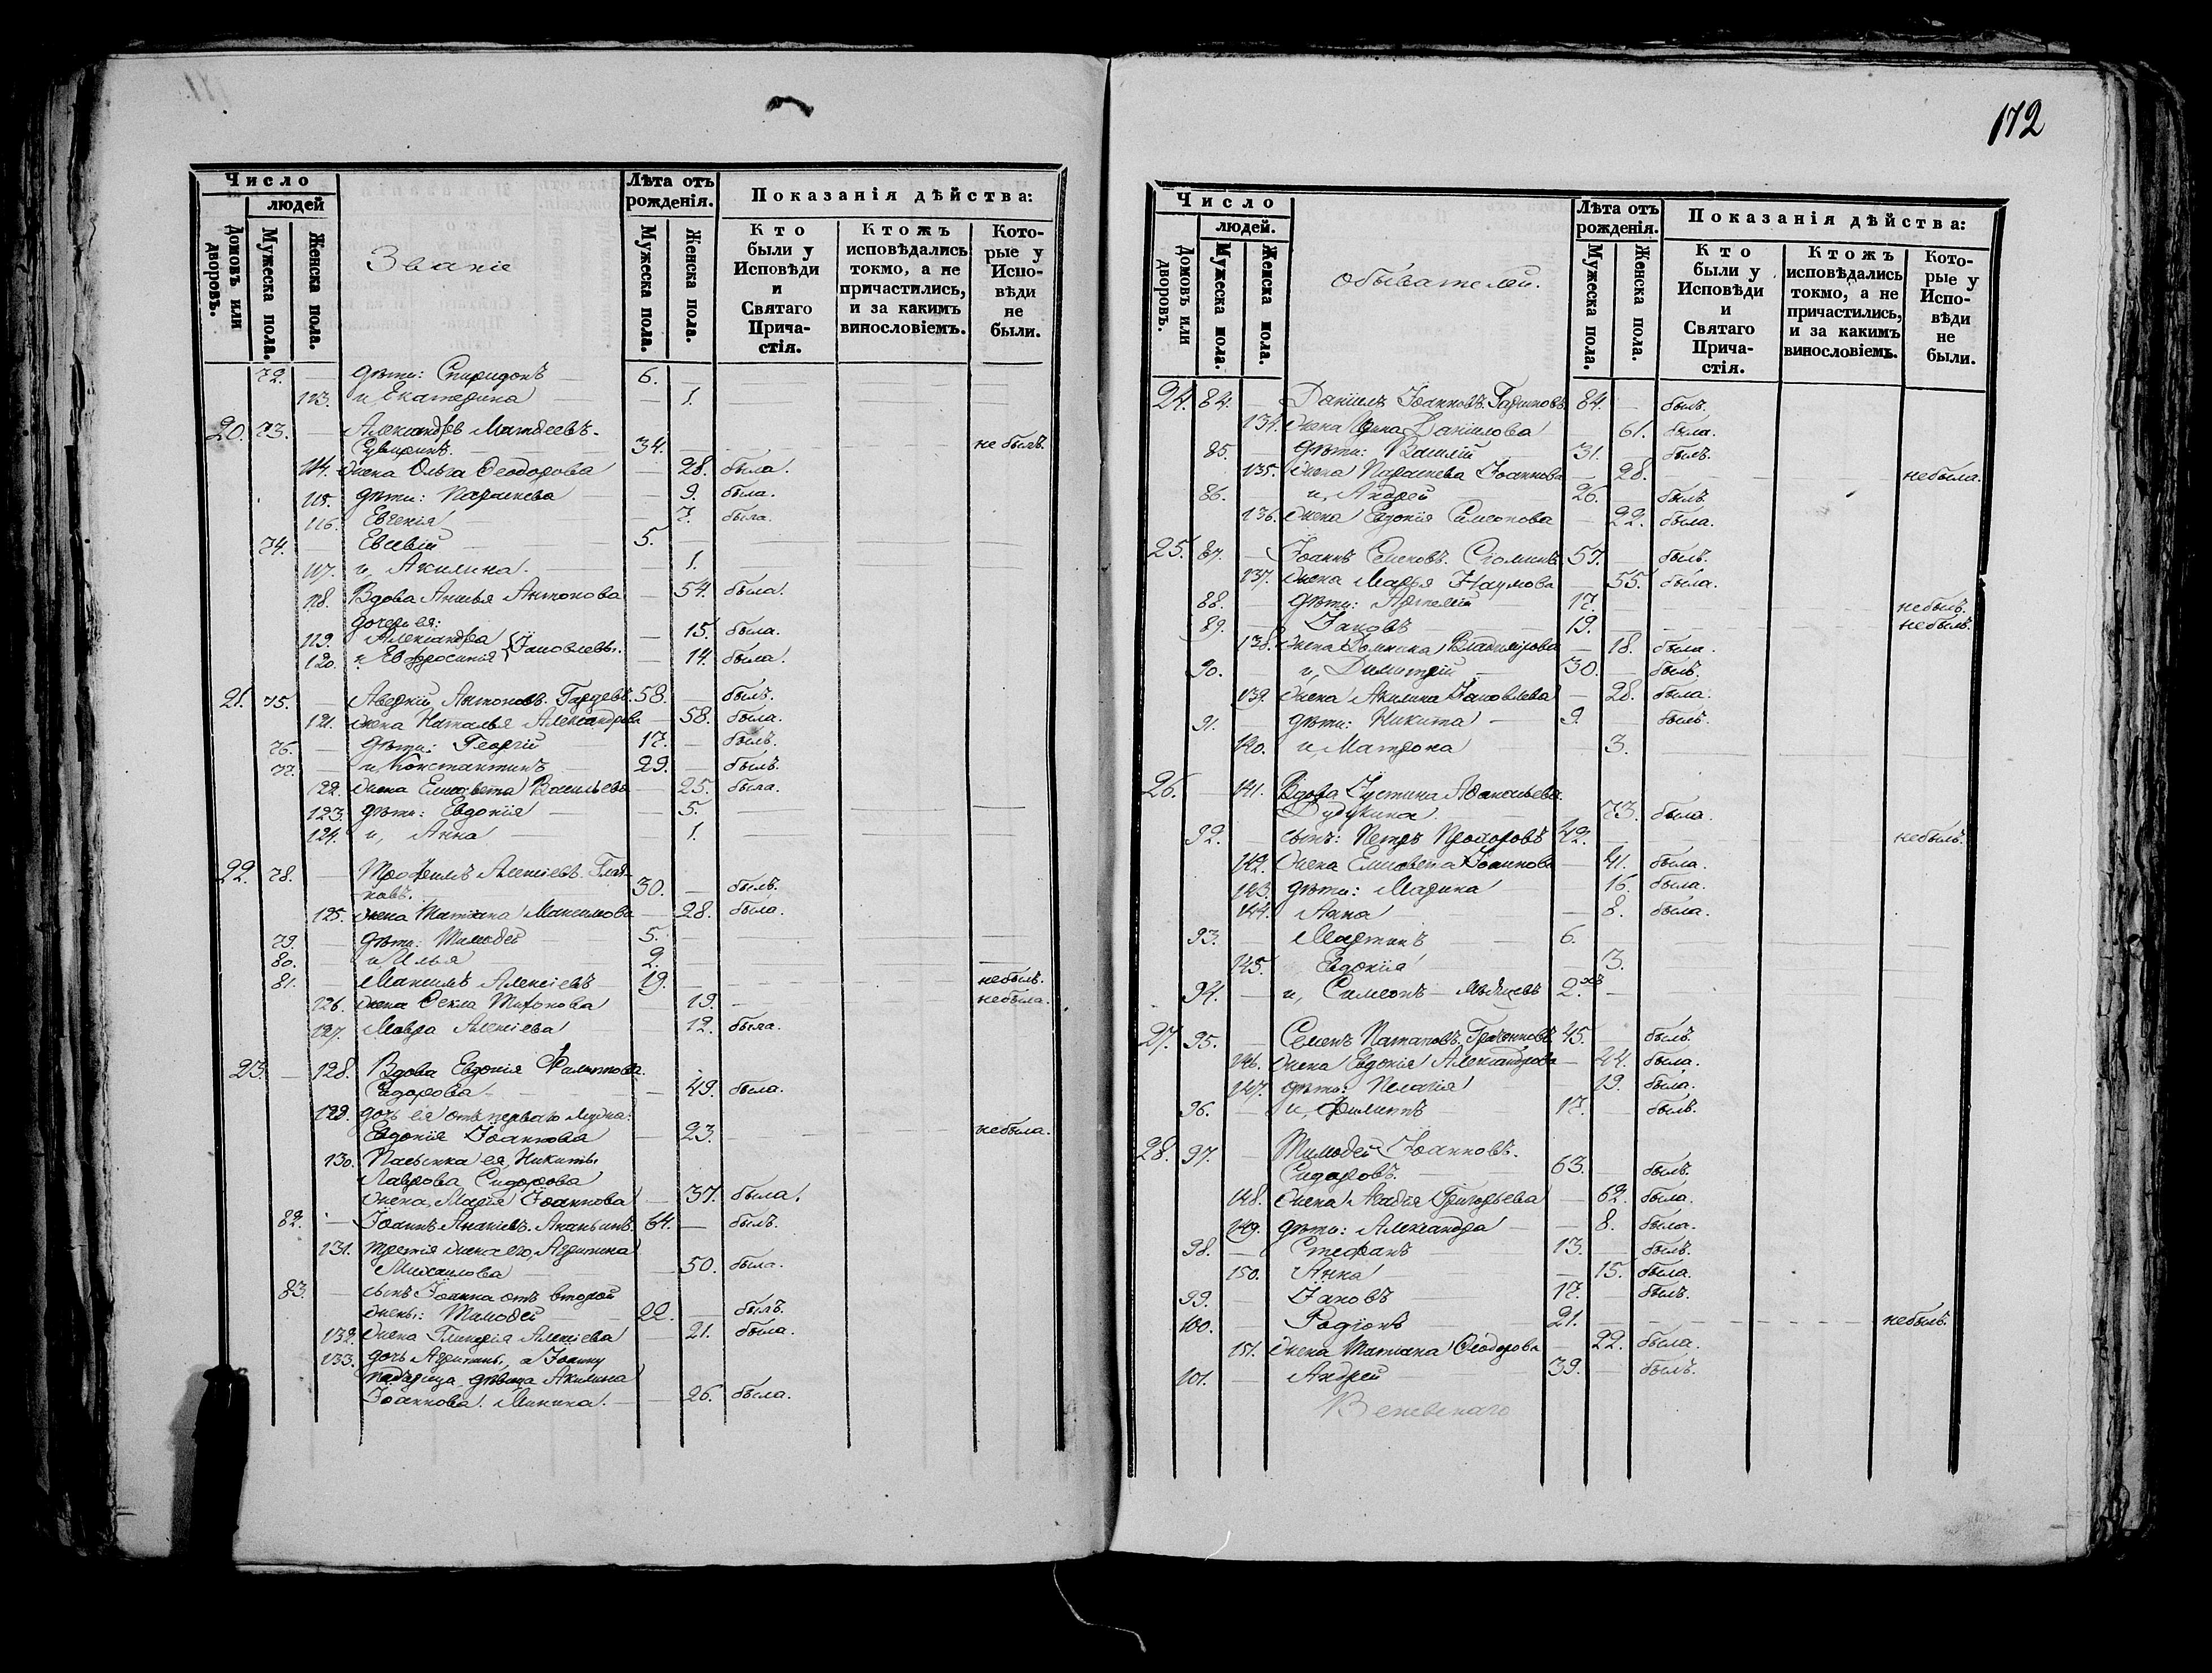 Число
людей
Домовъ или дворовъ.
Мужеска пола.
Женска пола.
Званіе
Лѣта отъ рожденія.
Мужеска пола.
Женска пола.
Показанія дѣйства:
Кто были у Исповѣди и Святаго Прича-стія.
Ктожъ исповѣдались токмо, а не причастились, и за какимъ винословіемъ.
Кото-рые у Испо-вѣди не были.
72. — дѣти: Спиридонъ — 6. —
113. и Екатерина — — 1.
20. 73. — Александръ Матѳеевъ.
34. — не былъ.
114. жена Ольга Ѳеодорова — 28. была.
115. дѣти: Параскева — 9. была.
116. Евгенія — 7. была.
74. — Евсевій 5. —
117. и, Акилина. — 1.
118. Вдова Анисья Антонова — 54. была.
дочери ея:
119. Александра — 15. была.
120. и Евфросинія Іаковлевы. — 14. была.
21. 75. — Авдеѣй Антоновъ 58. — былъ.
121. жена Наталья Александрова — 58. была.
76. — дѣти: Георгій 17. — былъ.
77. — и, Константинъ 29. — былъ.
122. жена Елисавета Васильева — 25. была.
123. дѣти: Евдокія — 5.
124. и, Анна — 1.
22. 78. — Трофимъ Алексіевъ
ковъ. 30. — былъ.
125. жена Татіана Максимова — 28. была.
79. — дѣти: Тимоѳей 5. —
80. — и Илья 2. —
81. — Максимъ Алексіевъ 19. — небылъ.
126. жена Ѳекла Тихонова 19. — небыла.
127. Мавра Алексіева 12. была.
23. — 128. Вдова Евдокія Филиппова
Сидорова — 49. была.
129. дочь ея отъ перваго мужа:
Евдокія Іоаннова — 23. небыла.
130. Пасынка ея, Никиты
Лаврова Сидорова
жена, Марія Іоаннова — 37. была.
82. — Іоаннъ Ананіевъ Ананьинъ. 64. — былъ.
131. третія жена его, Агрипина
Михаилова — 50. была.
83. — сынъ Іоанна отъ второй
жены: Тимоѳей 22. — былъ.
132. жена Гликерія Алексіева — 21. была.
133. дочь Агрипины, а Іоанну
падчерица дѣвица Акилина
Іоаннова Минина. — 26. была.
172
Число
людей.
Домовъ или дворовъ.
Мужеска пола.
Женска пола.
обывателей.
Лѣта отъ рожденія.
Мужеска пола.
Женска пола.
Показанія дѣйства:
Кто были у Исповѣди и Святаго Прича-стія.
Ктожъ исповѣдались токмо, а не причастились, и за какимъ винословіемъ.
Кото-рые у Испо-вѣди не были.
24. 84. — Даніилъ Іоанновъ 84. — былъ.
134. жена Ирина Даніилова — 61. была.
85. дѣти: Василій 31. былъ.
135. жена Параскева Іоаннова — 28. небыла.
86. и, Андрей 26. — былъ.
136. жена Евдокія Симеонова — 22. была.
25. 87. — Іоаннъ Семеновъ 57. — былъ.
137. жена Марѳа Наумова — 55. была.
88. — дѣти: Артемій 17. — небылъ.
89. — Іаковъ 19. — небылъ.
138. жена Домника Владимірова — 18. была.
90. — и, Димитрій 30. — былъ.
139. жена Акилина Іаковлева — 28. была.
91. — дѣти: Никита 9. — былъ.
140. и, Матрона 3.
26. 141. Вдова Іустина Аѳанасьева
73. была.
92. — сынъ: Петръ Прохоровъ 42. — небылъ.
142. жена Елисавета Іоаннова — 41. была.
143. дѣти: Марина — 16. была.
144. Анна — 8. была.
93. — Мартинъ 6.
145. Евдокія — 3.
94. — и, Симеонъ 2.
27. 95. — Семенъ Патаповъ 45. — былъ.
146. жена Евдокія Александрова — 44. была.
147. дѣти: Пелагія — 19. была.
96. — и, Филиппъ 17. — былъ.
28. 97. — Тимоѳей Іоанновъ.
Сидоровъ. 63. — былъ.
148. жена Григорьева — 62. была.
149. дѣти: Александра — 8. была.
98. — Стефанъ 13. — былъ.
150. Анна — 15. была.
99. — Іаковъ 17. — былъ.
100. — Родіонъ 21. — небылъ.
151. жена Татіана Ѳеодорова — 22. была.
101. — Андрей 39. — былъ.